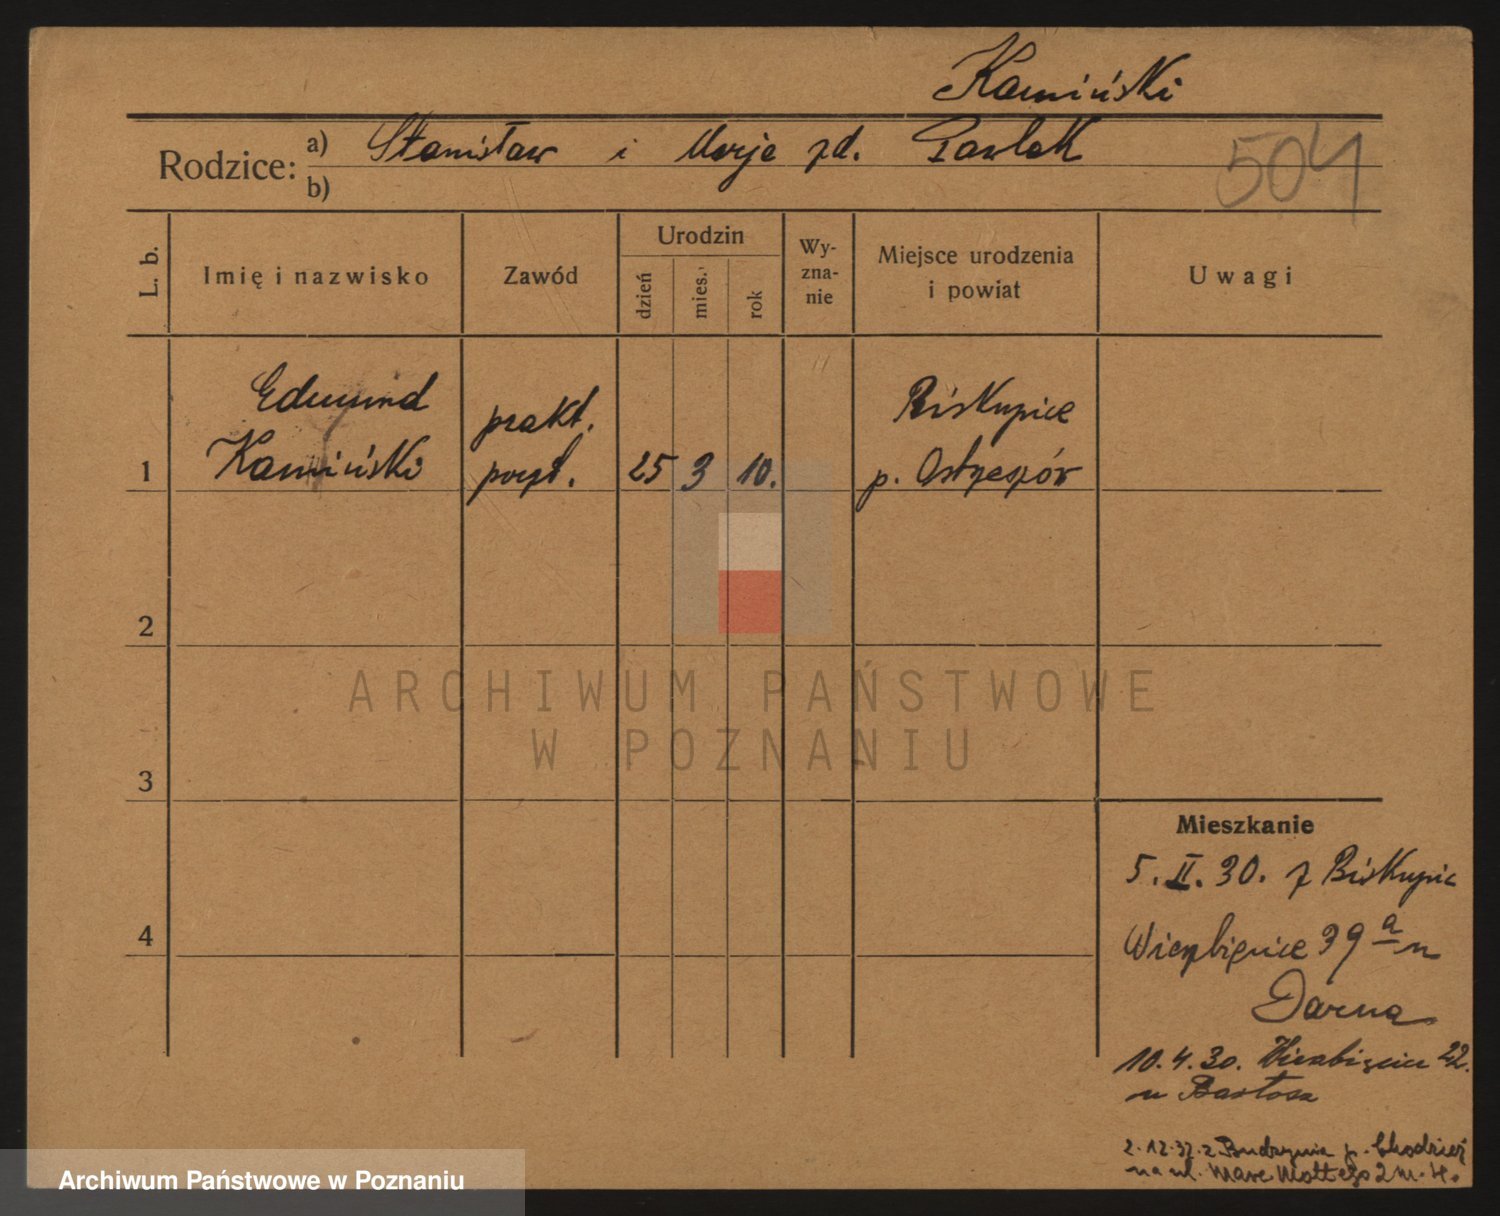 Kamiński
Rodzice: a) Stanisław i Marja zd. Pawlak
b)
504
L. b.
Imię i nazwisko
Zawód
Urodzin
dzień
mies.
rok
Wy-
zna-
nie
Miejsce urodzenia
i powiat
Uwagi
Edmund
Kamiński
prakt.
poczt.
25 3 10.
Biskupice
p. Ostrzeszów
1
2
3
4
ARCHIWUM PAŃSTWOWE
W POZNANIU
Mieszkanie
5. II. 30. z Biskupic
Wierzbięcice 39 a u
10. 4. 30. Wierzbięcice 22.
u Bartosza
2.12.32. z Budzynia p. Chodzież
na ul. Marc. Mottego 2 m. 4.
Archiwum Państwowe w Poznaniu